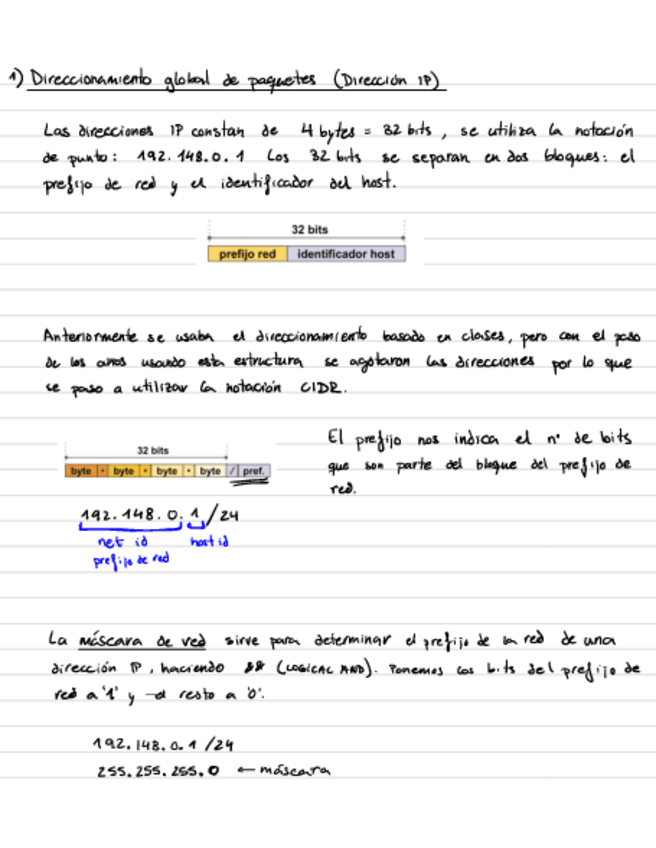 1) Direccionamiento global de paquetes (Dirección IP)
Las direcciones IP constan de 4 bytes = 32 bits, se utiliza la notación
de punto: 192.148.0.1 Los 32 bits se separan en dos bloques: el
prefijo de red y el identificador del host.
32 bits
prefijo red identificador host
Anteriormente se usaba el direccionamiento basado en clases, pero con el paso
de los años usando esta estructura se agotaron las direcciones por lo que
se paso a utilizar la notación CIDR.
32 bits
byte • byte • byte • byte / pref.
El prefijo nos indica el nº de bits
que son parte del bloque del prefijo de
red.
192.148.0.1/24
net id host id
prefijo de red
La máscara de red sirve para determinar el prefijo de la red de una
dirección IP, haciendo && (LOGICAL AND). Ponemos los bits del prefijo de
red a '1' y el resto a '0'.
192.148.0.1/24
255.255.255.0 ← máscara